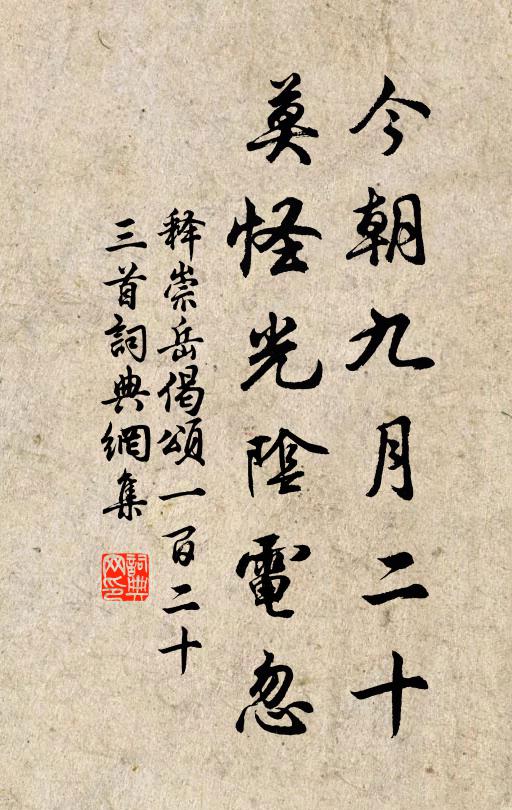 今朝九月二十
莫怪光陰電忽
释崇岳偈頌一百二十
三首詞典網集
詞典
网印